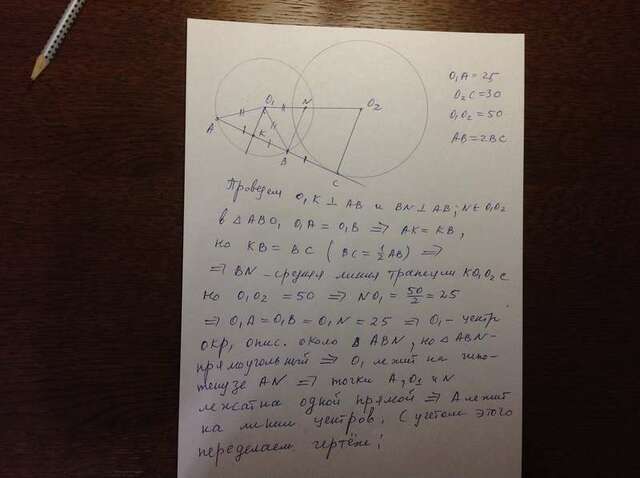 O₁A = 25
O₂C = 30
O₁O₂ = 50
AB = 2BC
O₁
N
O₂
A
K
B
C
Проведем O₁K ⊥ AB и BN ⊥ AB; N ∈ O₁O₂
в △ABO₁ O₁A = O₁B ⇒ AK = KB,
но KB = BC (BC = ½AB) ⇒
⇒ BN - средняя линия трапеции KO₁O₂C
но O₁O₂ = 50 ⇒ NO₁ = 50/2 = 25
⇒ O₁A = O₁B = O₁N = 25 ⇒ O₁ - центр
окр, опис. около △ ABN, но △ABN -
прямоугольный ⇒ O₁ лежит на гипо-
тенузе AN ⇒ точки A, O₁ и N
лежат на одной прямой ⇒ A лежит
на линии центров. С учетом этого
переделаем чертёж: